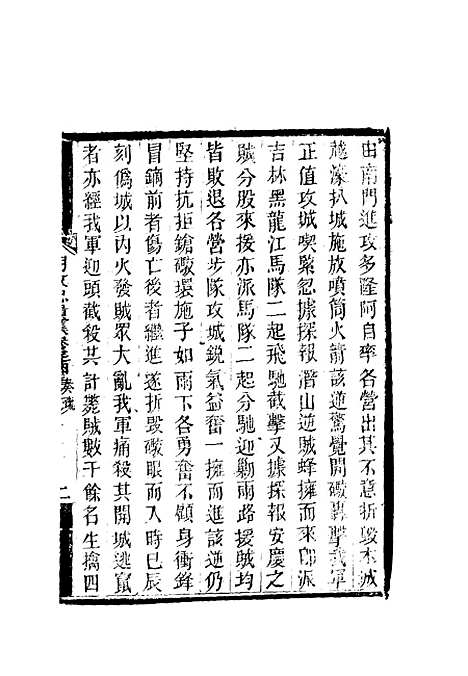 由南門進攻多隆阿自率各營出其不意折毀木城
越濠扒城施放噴筒火箭該逆驚覺開礮轟擊我軍
正值攻城喫緊忽據探報潛山逆賊蜂擁而來卽派
吉林黑龍江馬隊二起飛馳截擊又據探報安慶之
賊分股來援亦派馬隊二起分馳迎勦兩路援賊均
皆敗退各營步隊攻城銳氣益奮一擁而進該逆仍
堅持抗拒鎗礮環施子如雨下各勇奮不顧身衝鋒
冒鏑前者傷亡後者繼進遂折毀礮眼而入時已辰
刻僞城以內火發賊眾大亂我軍痛殺其開城逃竄
者亦經我軍迎頭截殺共計斃賊數千餘名生擒四
奏疏